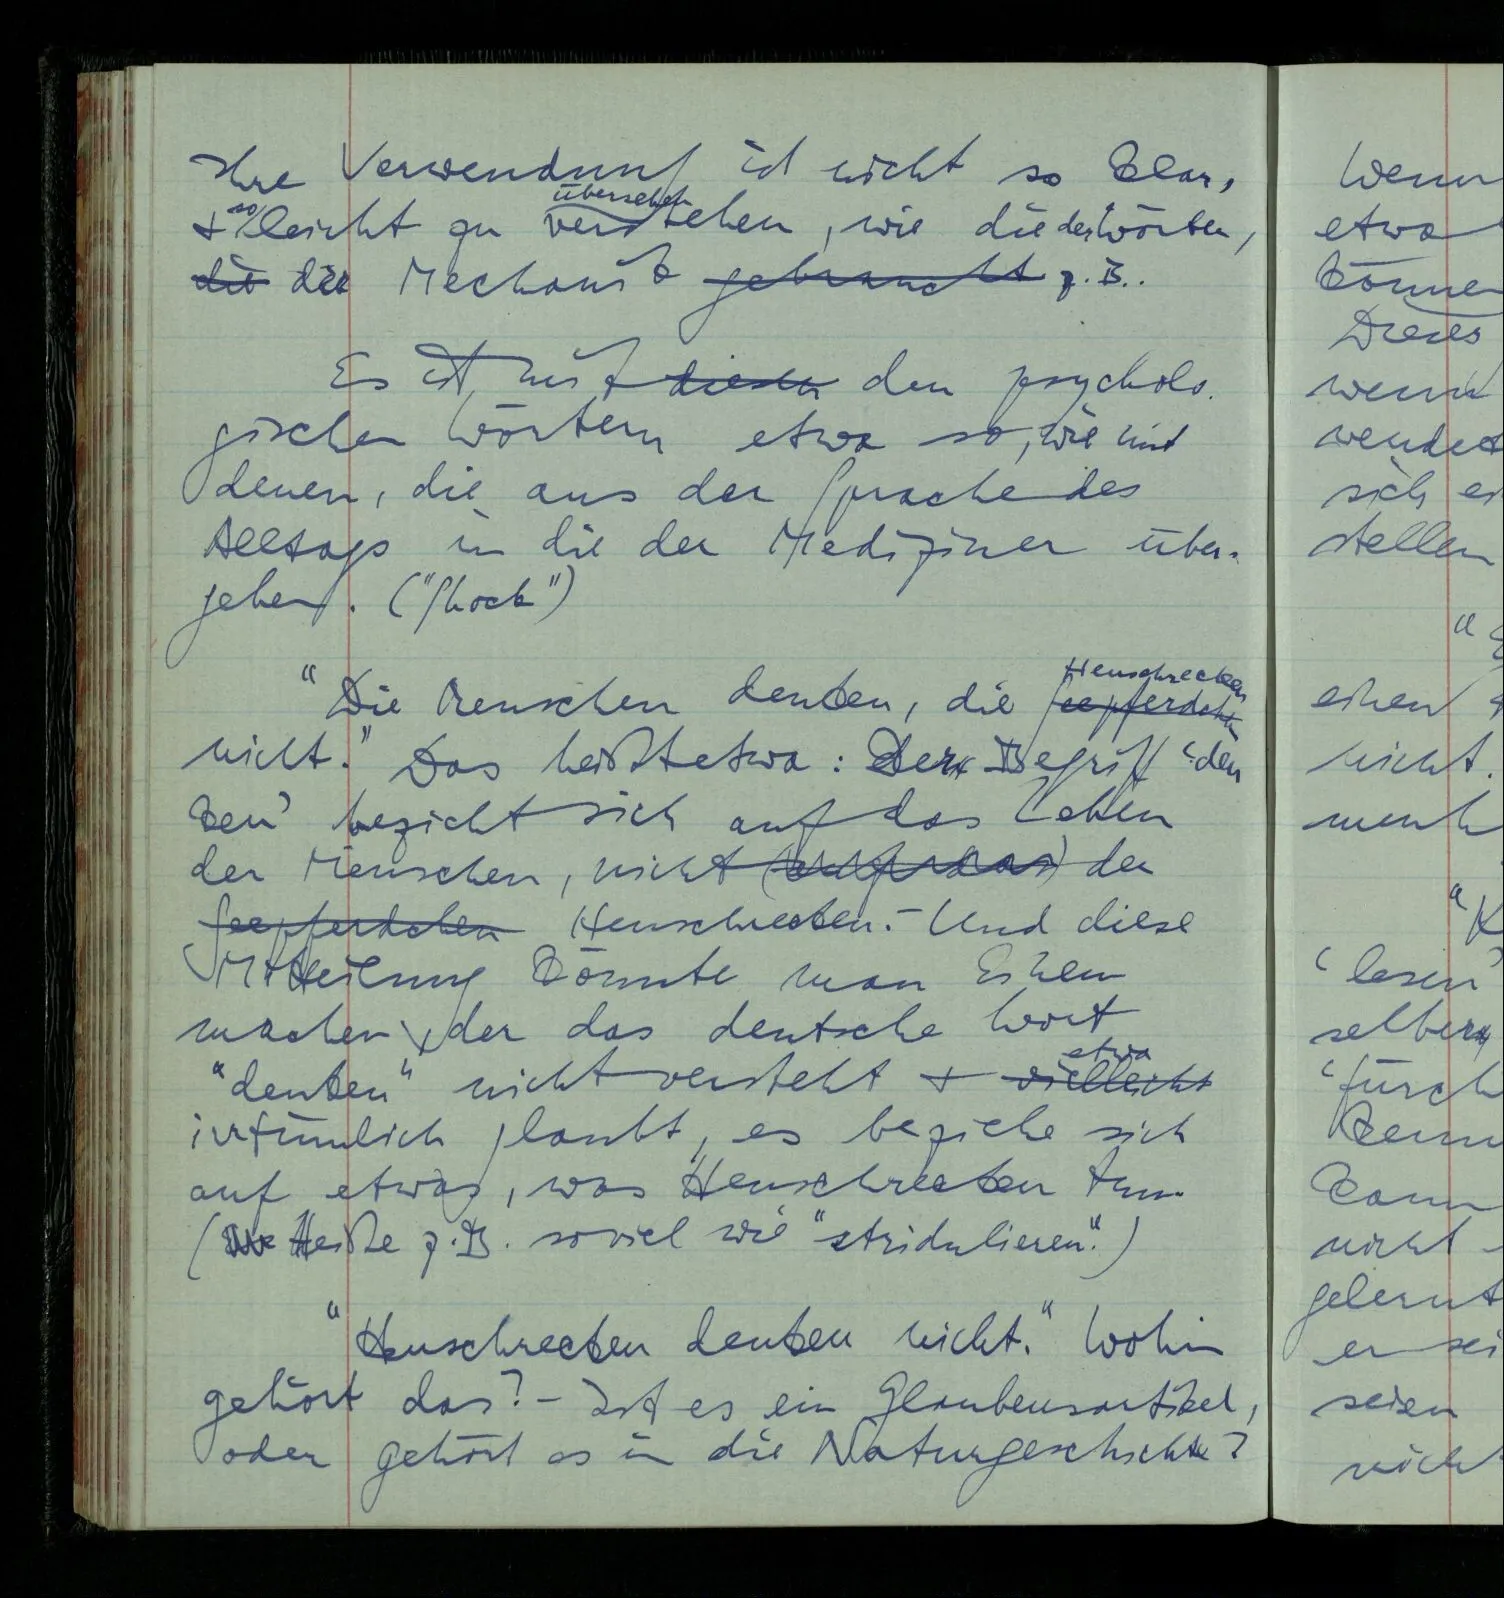 Ihre Verwendung ist nicht so klar,
übersehen
+ so leicht zu verstehen, wie die der Wörter,
die der Mechanik gebraucht z.B..
Es ist mit diesen den psycholo-
gischen Wörtern etwa so, wie mit
denen, die aus der Sprache des
Alltags in die der Mediziner über-
gehen. ("Shock")
Heuschrecken
"Die Menschen denken, die Seepferdchen
nicht." Das heißt etwa: Der Begriff 'den
ken' bezieht sich auf das Leben
der Menschen, nicht (auf das) der
Seepferdchen Heuschrecken. – Und diese
Mitteilung könnte man Einem
machen, der das deutsche Wort
etwa
"denken" nicht versteht + vielleicht
irrtümlich glaubt, es beziehe sich
auf etwas, was Heuschrecken tun.
(Heiße z.B. soviel wie "stridulieren".)
"Heuschrecken denken nicht." Wohin
gehört das? – Ist es ein Glaubensartikel,
oder gehört es in die Naturgeschichte?
Wenn
etwa
können
Dieses
wenn
wendet
sich ei
stellen
einen
nicht.
"K
'lesen'
selber
'fürch
kenn
kann
nicht
gelernt
er sei
seien
nicht